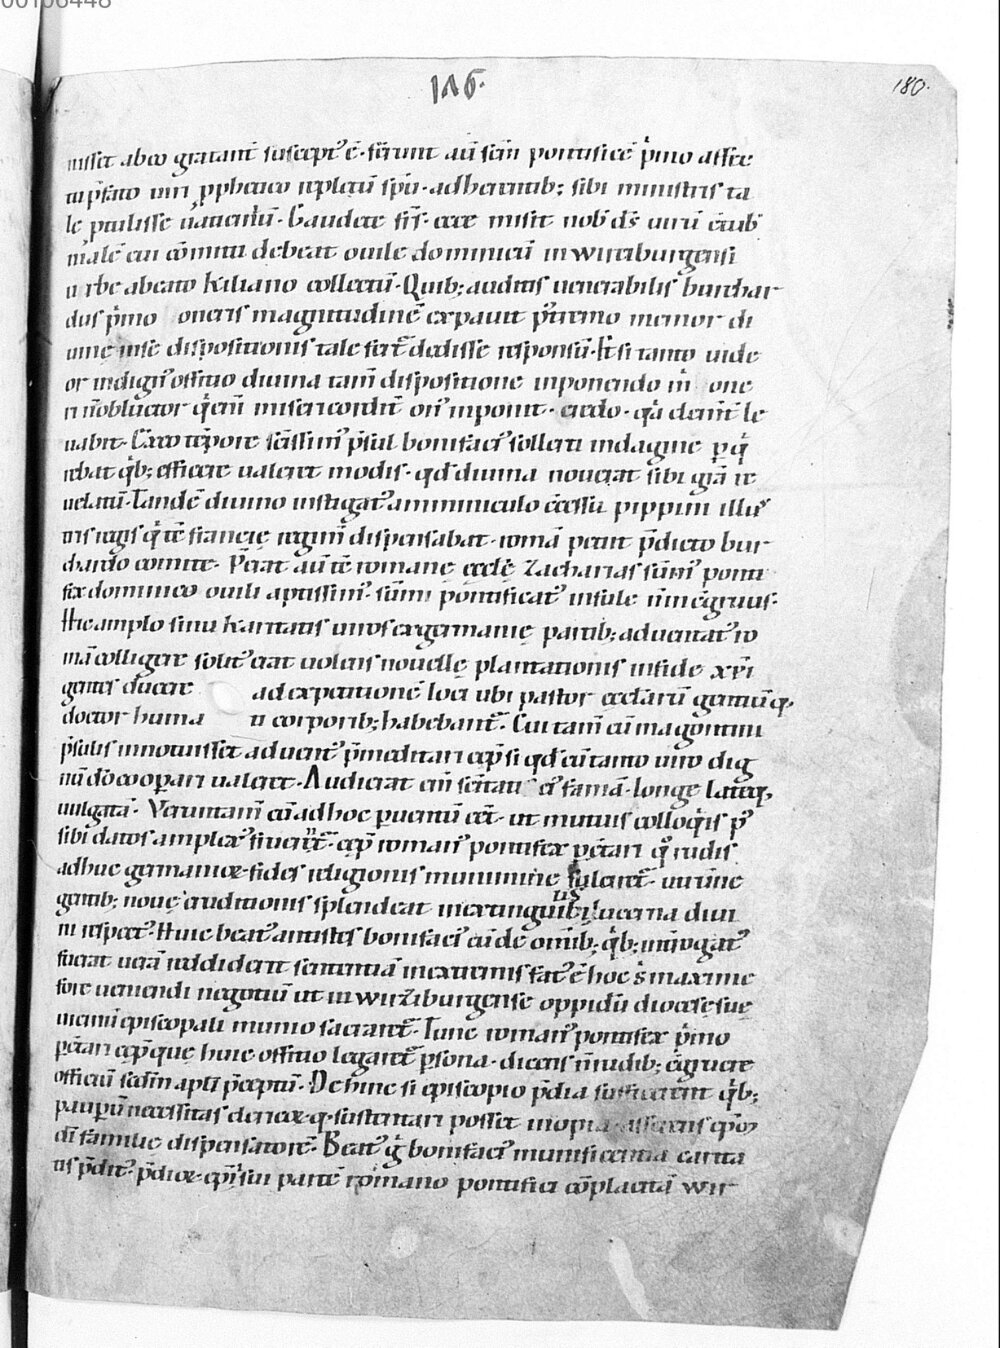 00106448
186.
180.
nisset ab eo gratant̄ suscept᷒ ē. ferunt aū scm̄ pontificē p̍mo affec
tu p̄fato uiri pphetico repletū spū. adherentib; sibi ministris ta
le ptulisse uaticiniū. Gaudete frs̄. ecce misit nob̄ dn̄s uirū
cui cōmitti debeat ouile dominicū in wirziburgensi
urbe a beato kiliano collectū. Quib; auditis uenerabilis burchar
dus p̍mo oneris magnitudinē expauit p᷒tremo memor di
uinę misē dispositionis tale fert̄ dedisse responsū. Et si tanto uide
or indign᷒ offitio diuina tam̄ dispositione inponendo m̍ one
ri n̄ obluctor q̍ eni᷒ misericordit̄ on᷒ inponit. credo. q̍a clement̄ le
uabit. Ex eo tēpore sc̄issim᷒ p̄sul bonifaci᷒ sollerti indagine pq̍
rebat q̍b; efficere ualeret modis. qd̄ diuina nouerat sibi gr̄a re
uelatū. Tandē diuino instigat᷒ amminiculo c̄cessū pippini illu᷒
tris regis q̍ tē francię regim̄ dispensabat. romā petiit p̄dicto bur
chardo comite. Perat aū tē romanę eccle᷒ Zacharias sūm᷒ ponti
fex dominico ouili aptissim᷒. sūmi pontificat᷒ insule n̄ incgruus.
Hic amplo sinu karitatis uiros ex germanię partib; aduentat᷒ ro
mā colligere solit᷒ erat uolens nouellę plantationis in fide xp̄i
gentes ducere ad expetitionē loci ubi pastor eccl̄arū gentiūq;
doctor huma ti corporib; habebant᷒. Cui tam̄ cū magontini
p̄sulis innotuisset aduent᷒ p̄meditari cep̄ si qd̄ cū tanto uiro dig
nū dō coopari ualeret. Audierat eni᷒ sc̄itati ei᷒ famā. longe lateq;
uulgatā. Veruntam̄ cū ad hoc puentū eēt. ut mutuis colloq̍is p᷒
sibi datos amplex᷒ fruerēt᷒. cep̄ roman᷒ pontifex pctari q᷒ rudis
adhuc germanicę fidei religionis munimine fulciret᷒. utrūne
gentib; nouę eruditionis splendeat inextinguibilis lucerna diui
ni respect᷒. Huic beat᷒ antistes bonifaci᷒ cū de omib; q̍b; int̄rogat᷒
fuerat uerā reddiderit sententiā in extremis fat᷒ ē hoc s̍ maxime
fore ueniendi negotiū ut in wirziburgense oppidū diocesę suę
uicinū episcopali munio sacraret᷒. Tunc roman᷒ pontifex p̍mo
pctari cep̄ quę huic offitio legaret᷒ psona. dicens n̄ rudib; c̄gruere
officiū sed m̄ apti᷒ p̄ceptū. Dehinc si episcopio p̄dia sufficerent q̍b;
paupū necessitas clericoꝝ q; sustentari posset inopia. asserens ep̄os
dī familię dispensatorē. Beat᷒ g̍ bonifaci᷒ munificentia carita
tis p̄dit᷒. p̄dioꝝ ep̄i sui partē romano pontifici cōplacitā wir